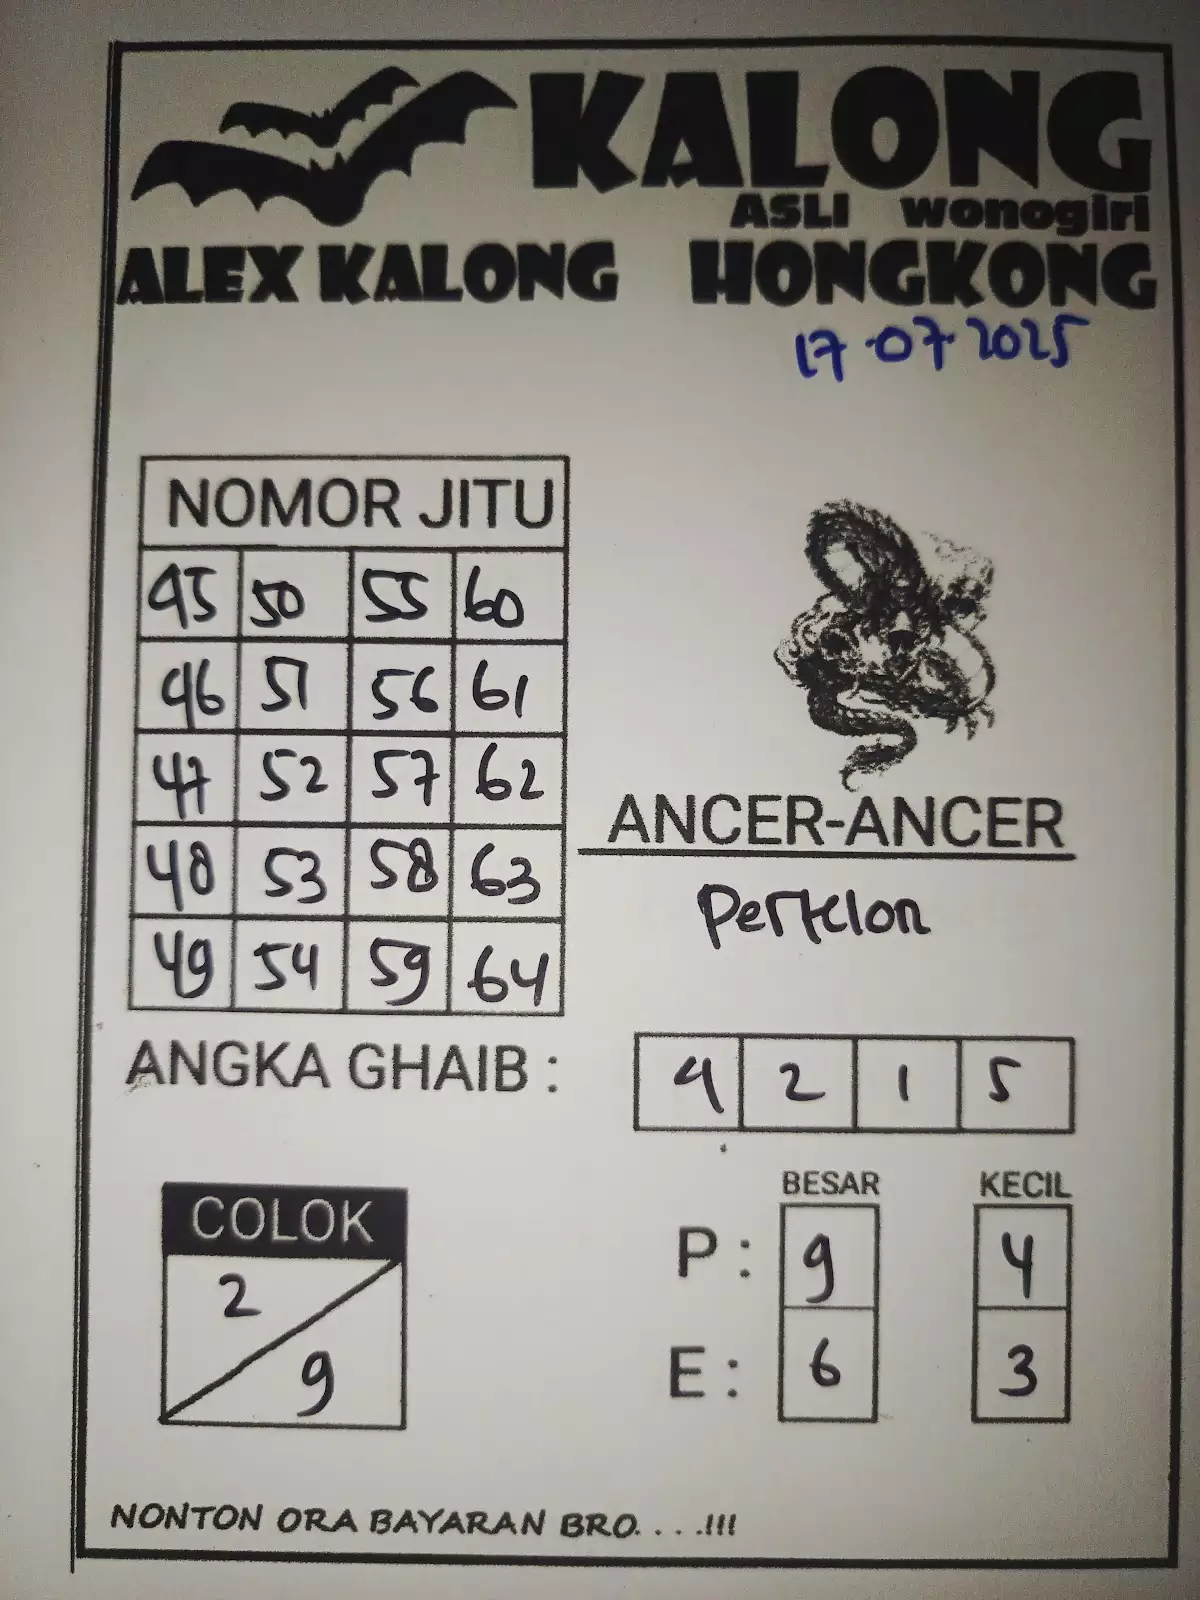 KALONG
ASLI wonogiri
ALEX KALONG HONGKONG
17-07-2025
NOMOR JITU
45 50 55 60
46 51 56 61
47 52 57 62
48 53 58 63
49 54 59 64
ANCER-ANCER
Pertelon
ANGKA GHAIB : 4 2 1 5
COLOK
2
9
BESAR KECIL
P : 9 4
E : 6 3
NONTON ORA BAYARAN BRO. . . .!!!